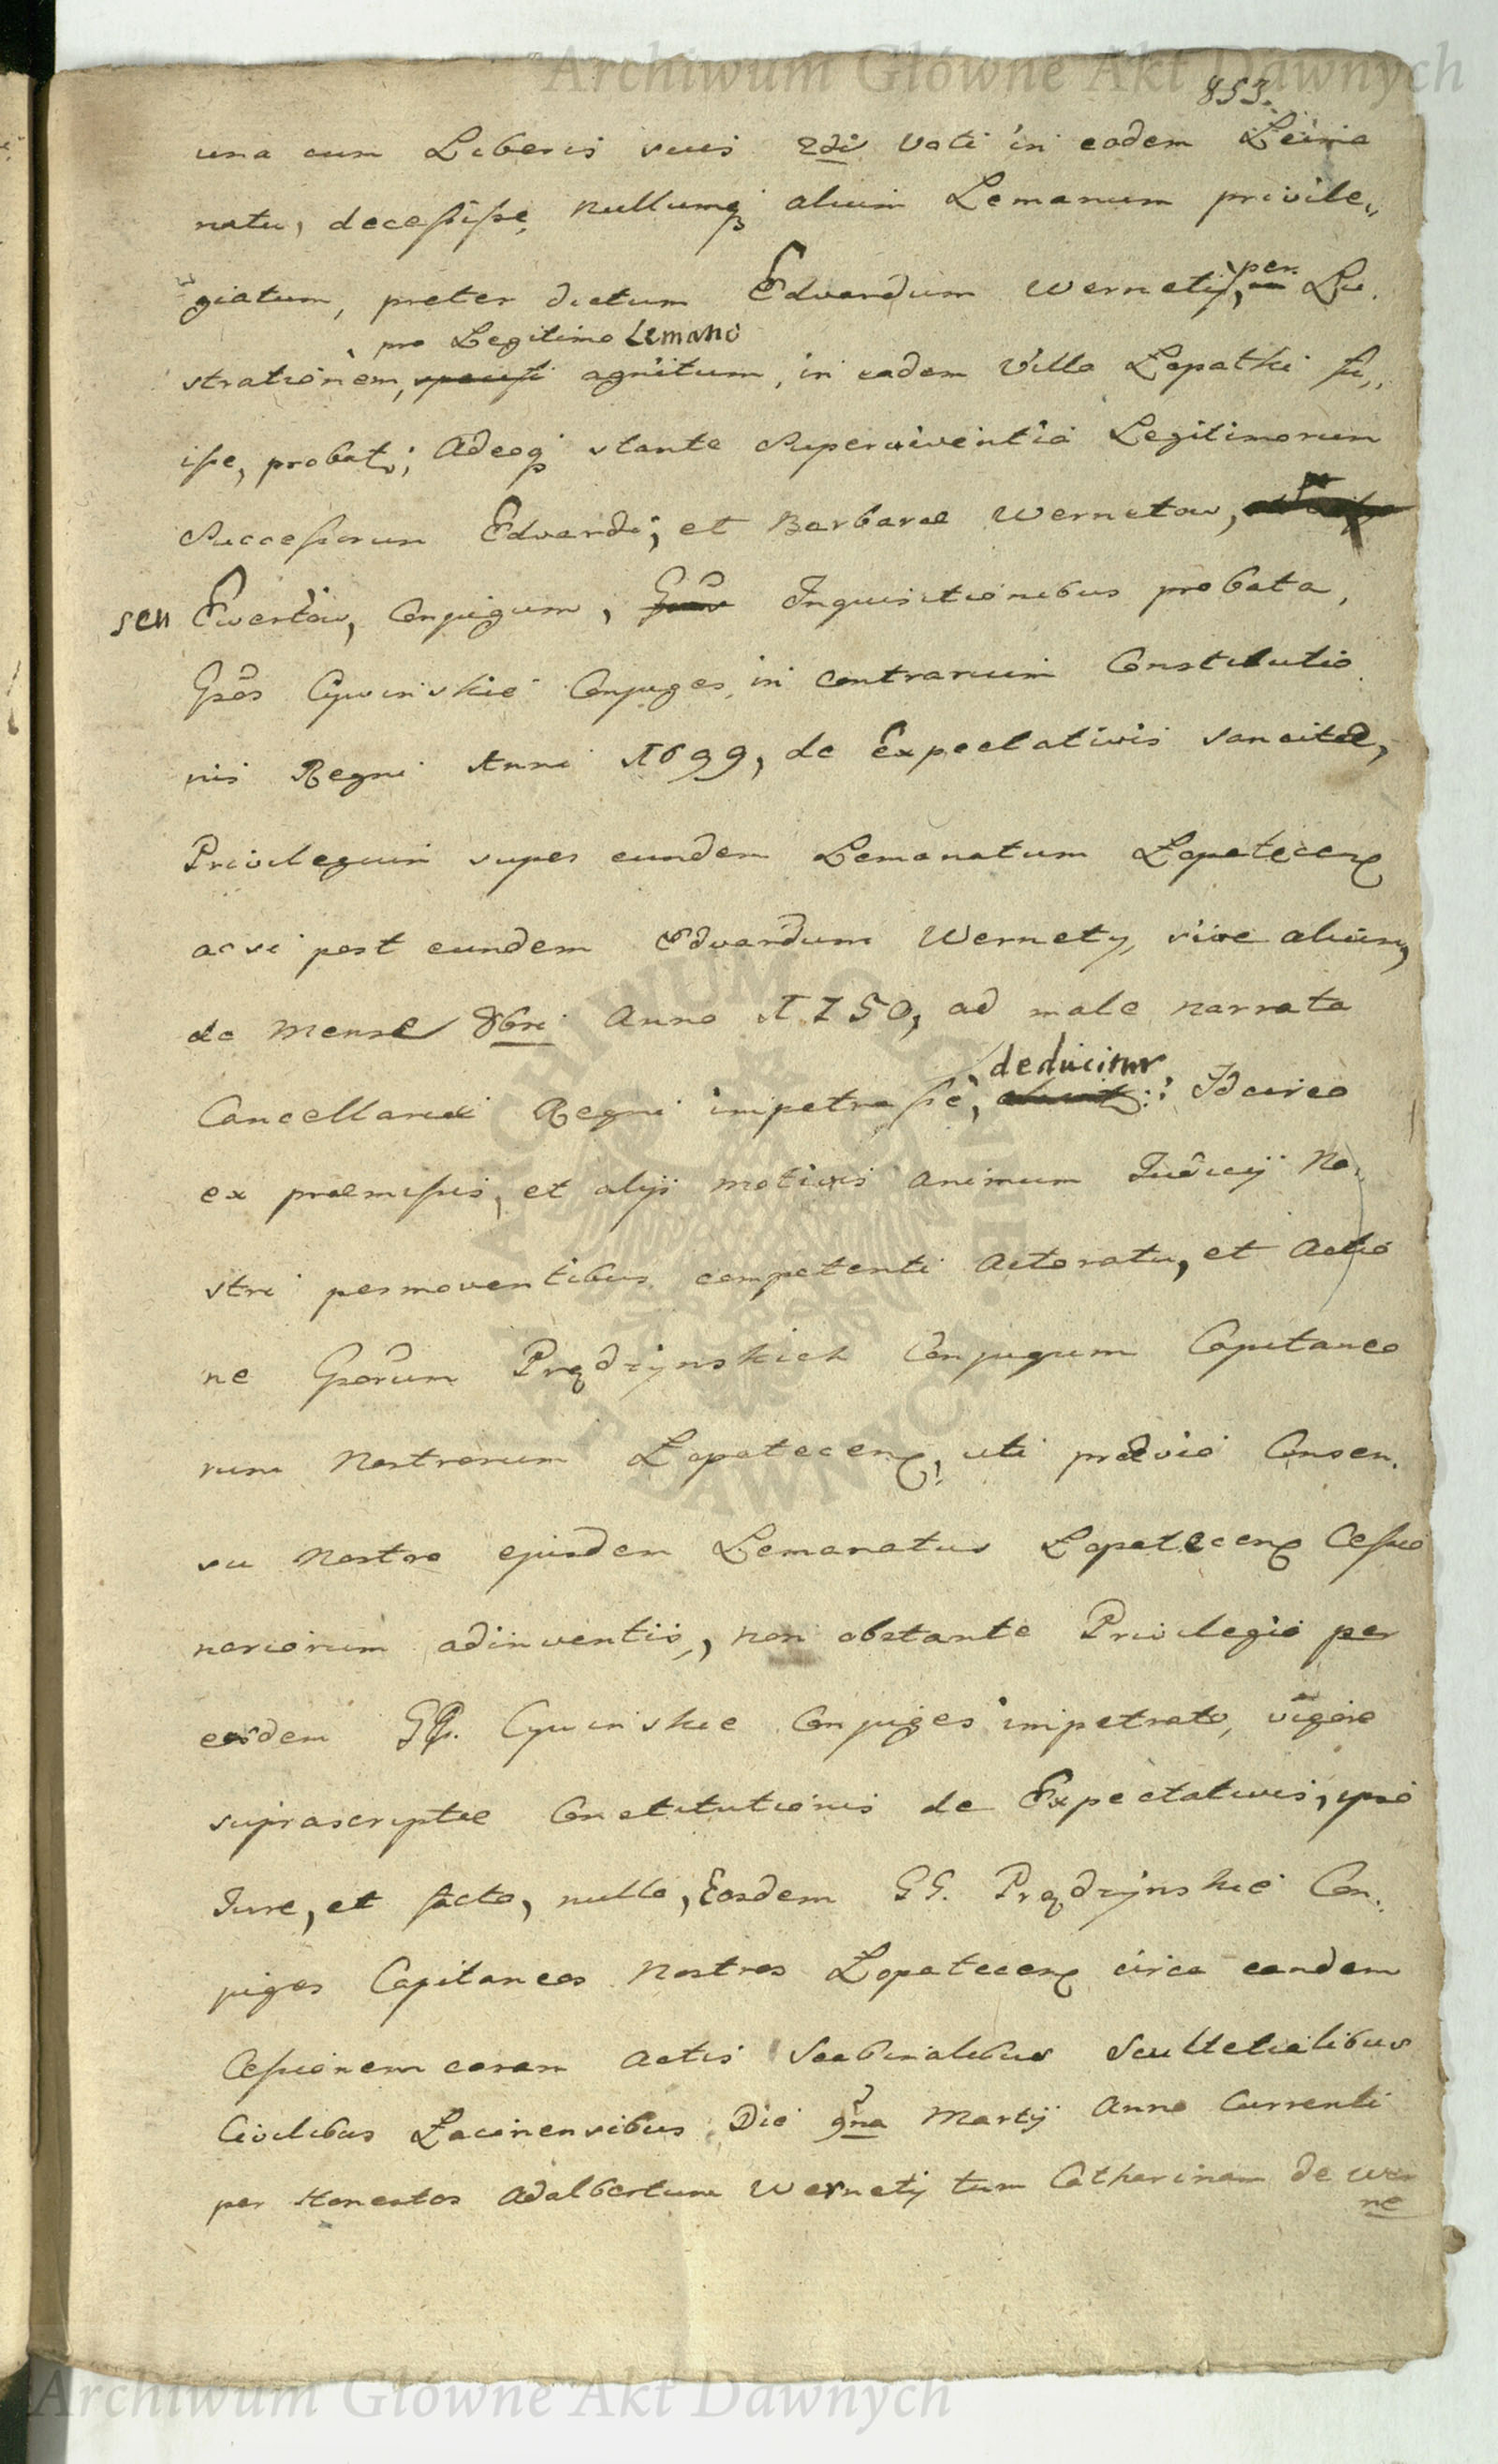 Archiwum Główne Akt Dawnych
853.
una cum Liberis suis 2di Voti in eadem
natu, decessisse, nullumq alium Lemanum privile„
giatum, preter dictum Edvardum Wernety, per Lu.
pro Legitimo Lemano
strationem, agnitum, in eadem Villa Łopatki fu„
isse, probat; Adeoq stante Superviventia Legitimorum
Successorum Edvardi, et Barbarae Wernetow,
seu Ewertow, Conjugum, Inquisitionibus probata,
Gsos Cywinskie Conjuges, in contrarium Constitutio
nis Regni Anni 1699, de Expectativis sancitae,
Privilegium super eundem Lemanatum Łopatecens
ac si post eundem Edvardum Wernety, sive alium,
de Mense 8bri Anno 1750, ad male narrata
deducitur
Cancellariae Regni impetrasse, Idcirco
ex praemissis, et alijs motivis animum Judicij No„
stri permoventibus competenti Actoratu, et Actio
ne Gsorum Prądzynskich Conjugum Capitaneo
rum Nostrorum Łopatecens, uti praevio Consen.
su Nostro ejusdem Lemanatus Łopatecens Cessio
nariorum adinventis, non obstante Privilegio per
eosdem GG. Cywinskie Conjuges impetrato, vigore
suprascriptae Constitutionis de Expectativis, ipso
Jure, et facto, nullo, Eosdem GG. Prądzynskie Con.
juges Capitaneos Nostros Łopatecens circa eandem
Cessionem coram Actis Scabinalibus Scultetialibus
Civilibus Łacinensibus Die 9na Martij Anno Currenti
per Honestos Adalbertum Wernety tum Catharinam de Wer
ne
ARCHIWUM GŁÓWNE AKT DAWNYCH
Archiwum Główne Akt Dawnych